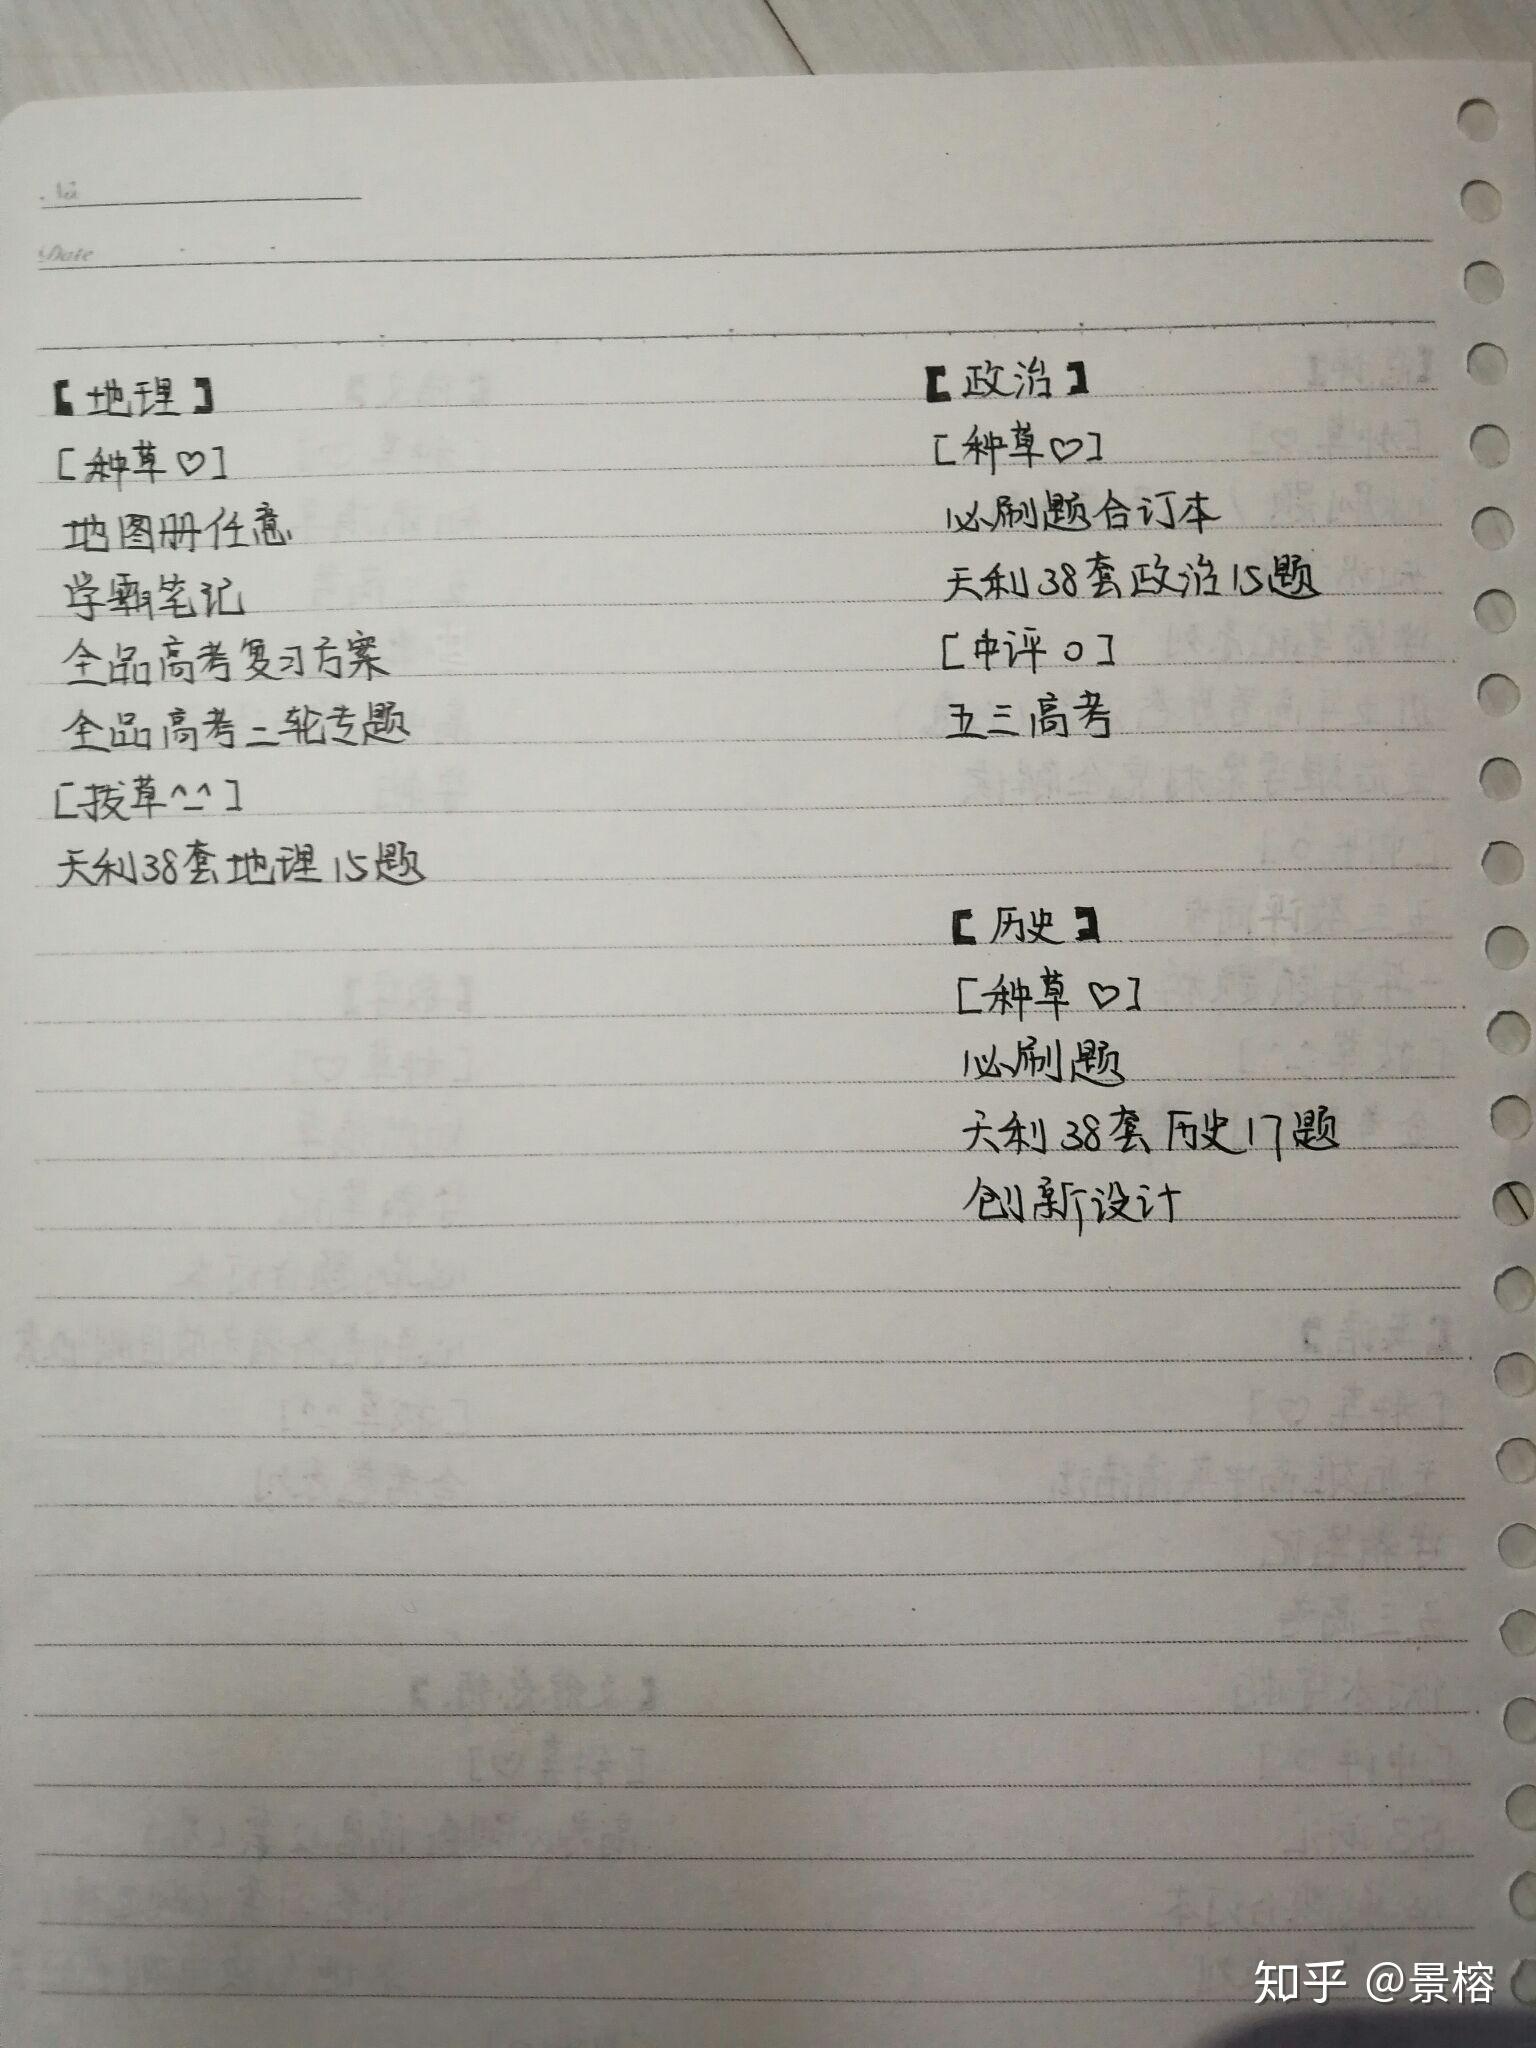 Date
【地理】
[种草♡]
地图册任意
学霸笔记
全品高考复习方案
全品高考二轮专题
[拔草^_^]
天利38套地理15题
【政治】
[种草♡]
必刷题合订本
天利38套政治15题
[中评○]
五三高考
【历史】
[种草♡]
必刷题
天利38套历史17题
创新设计
知乎 @景榕